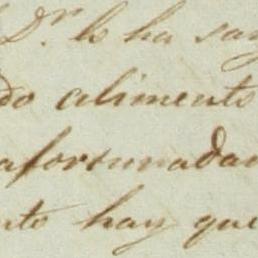 Dr. lo ha san
do alimento
afortunadam
nto hay que